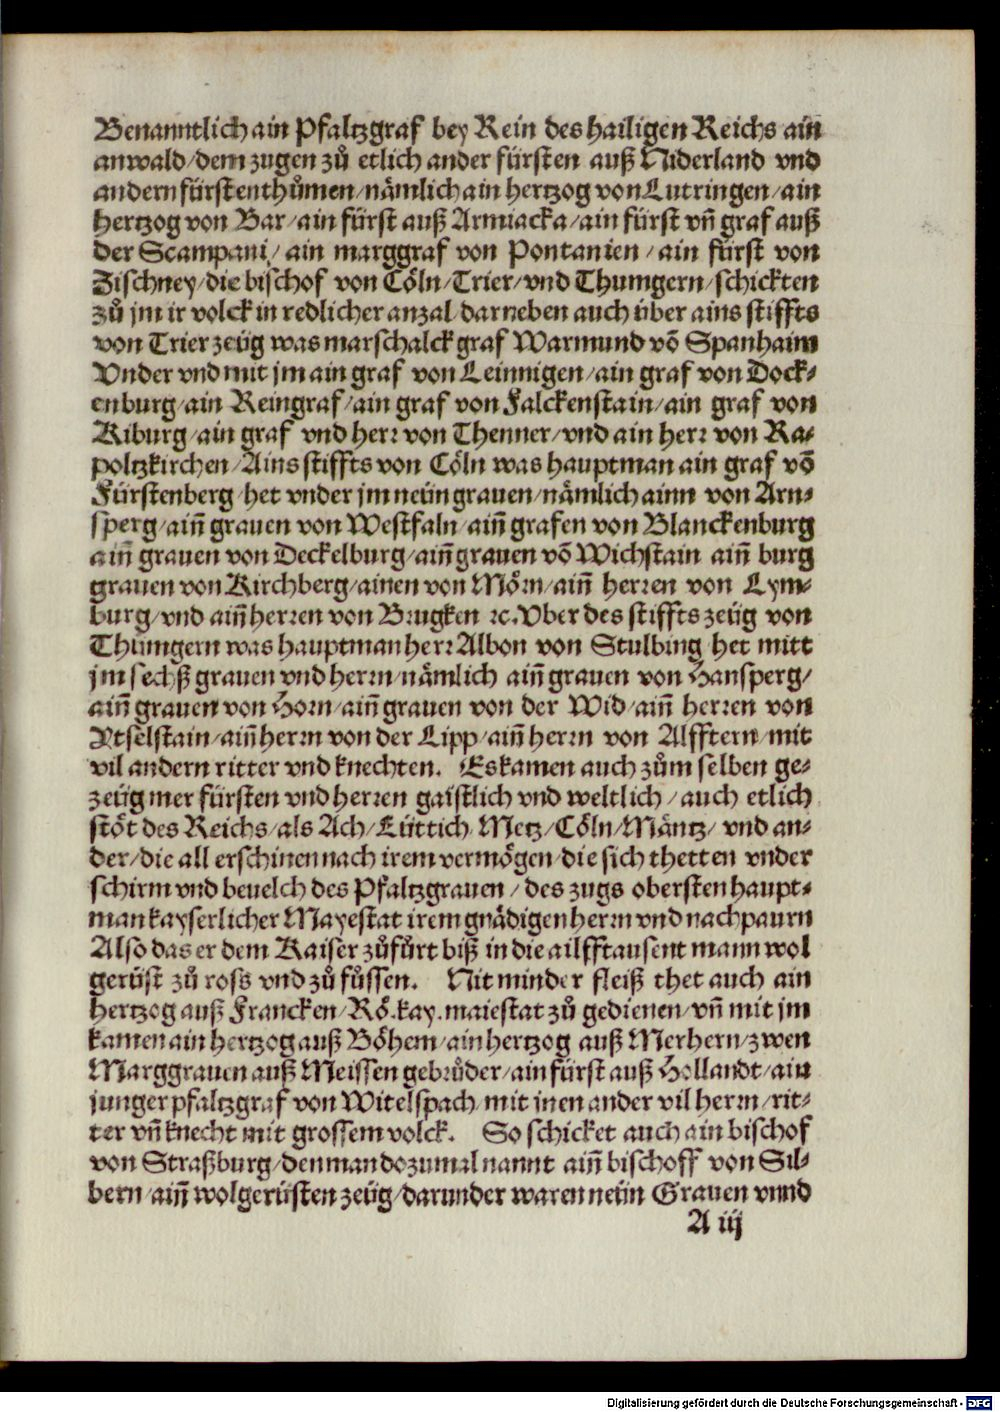 Benanntlich ain Pfaltzgraf bey Rein des hailigen Reichs ain
anwald/dem zugen zů etlich ander fürsten auß Niderland vnd
andern fürstenthůmen/nämlich ain hertzog von Lutringen/ain
hertzog von Bar/ain fürst auß Armiacka/ain fürst vñ graf auß
der Scampani/ain marggraf von Pontanien/ain fürst von
Zischney/die bischof von Cöln/Trier/vnd Thumgern/schickten
zů jm ir volck in redlicher anzal/darneben auch über ains stiffts
von Trier zeüg was marschalck graf Warmund võ Spanhaim
Vnder vnd mit jm ain graf von Leinnigen/ain graf von Dock⸗
enburg/ain Reingraf/ain graf von Falckenstain/ain graf von
Kiburg/ain graf vnd herr von Thenner/vnd ain herr von Ra⸗
poltzkirchen/Ains stiffts von Cöln was hauptman ain graf võ
Fürstenberg/het vnder jm neün grauen/nämlich ainn von Arn⸗
sperg/aiñ grauen von Westfaln/aiñ grafen von Blanckenburg
aiñ grauen von Deckelburg/aiñ grauen võ Wichstain aiñ burg
grauen von Kirchberg/ainen von Mörn/aiñ herren von Lym⸗
burg/vnd aiñ herren von Brugken ꝛc. Vber des stiffts zeüg von
Thumgern was hauptman herr Albon von Stulbing/het mitt
jm sechß grauen vnd herrn/nämlich aiñ grauen von Hansperg/
aiñ grauen von Horn/aiñ grauen von der Wid/aiñ herren von
Ytselstain/aiñ herrn von der Lipp/aiñ herrn von Alfftern/mit
vil andern ritter vnd knechten. Es kamen auch zům selben ge⸗
zeüg mer fürsten vnd herren gaistlich vnd weltlich/auch etlich
stöt des Reichs/als Ach/Lüttich/Metz/Cöln/Mäntz/vnd an⸗
der/die all erschinen nach irem vermögen/die sich thetten vnder
schirm vnd beuelch des Pfaltzgrauen/des zugs obersten haupt⸗
man kayserlicher Mayestat irem gnädigen herrn vnd nachpaurn
Also das er dem Kaiser zůfůrt biß in die ailfftausent mann wol
gerüst zů ross vnd zů fůssen. Nit minder fleiß thet auch ain
hertzog auß Francken/Rö.kay.maiestat zů gedienen/vñ mit jm
kamen ain hertzog auß Böhem/ain hertzog auß Merhern/zwen
Marggrauen auß Meissen gebrůder/ain fürst auß Hollandt/ain
junger pfaltzgraf von Witelspach/mit inen ander vil herrn/rit⸗
ter vñ knecht mit grossem volck. So schicket auch ain bischof
von Straßburg/den man dozumal nannt aiñ bischoff von Sil⸗
bern/aiñ wolgerüsten zeüg/darunder waren neün Grauen vnnd
A iij
Digitalisierung gefördert durch die Deutsche Forschungsgemeinschaft - DFG